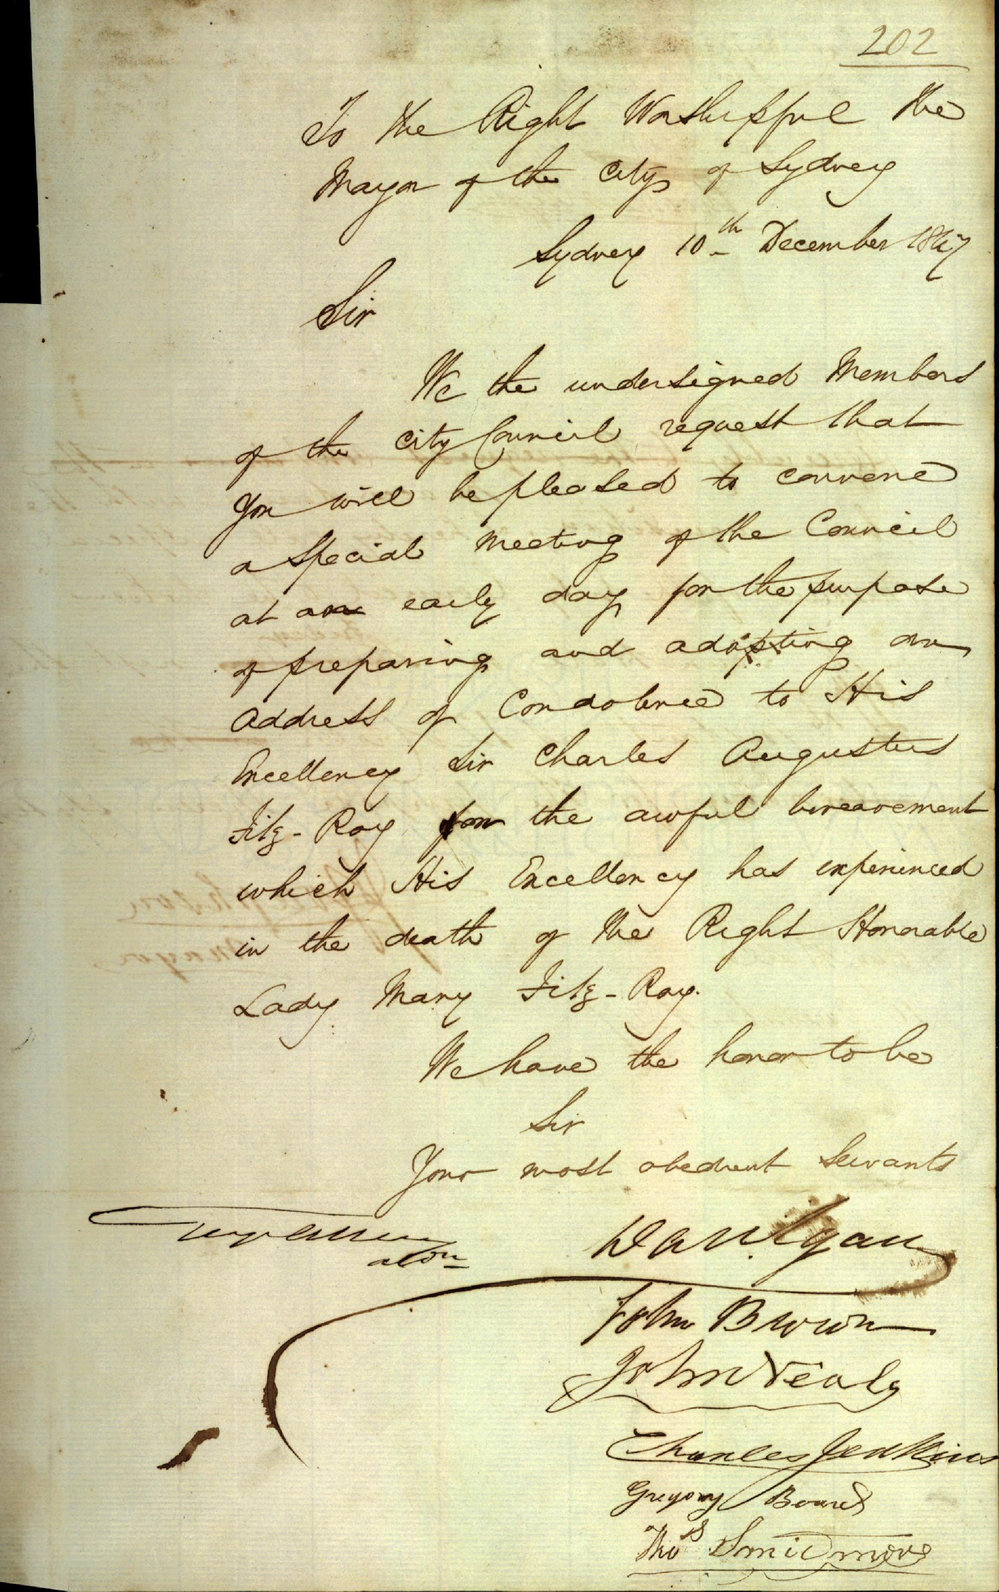 202
To the Right Worshipful the
Mayor of the City of Sydney
Sydney 10th December 1847
Sir
We the undersigned Members
of the City Council request that
you will be pleased to convene
a Special Meeting of the Council
at an early day for the purpose
of preparing and adopting an
Address of Condolence to His
Excellency Sir Charles Augustus
Fitz-Roy for the awful bereavement
which His Excellency has experienced
in the death of the Right Honorable
Lady Mary Fitz-Roy.
We have the honor to be
Sir
Your most obedient Servants
Geo Allen
aldn
Dan Egan
John Brown
John Nealy
Charles Jenkins
Gregory Board
Thos Smidmore